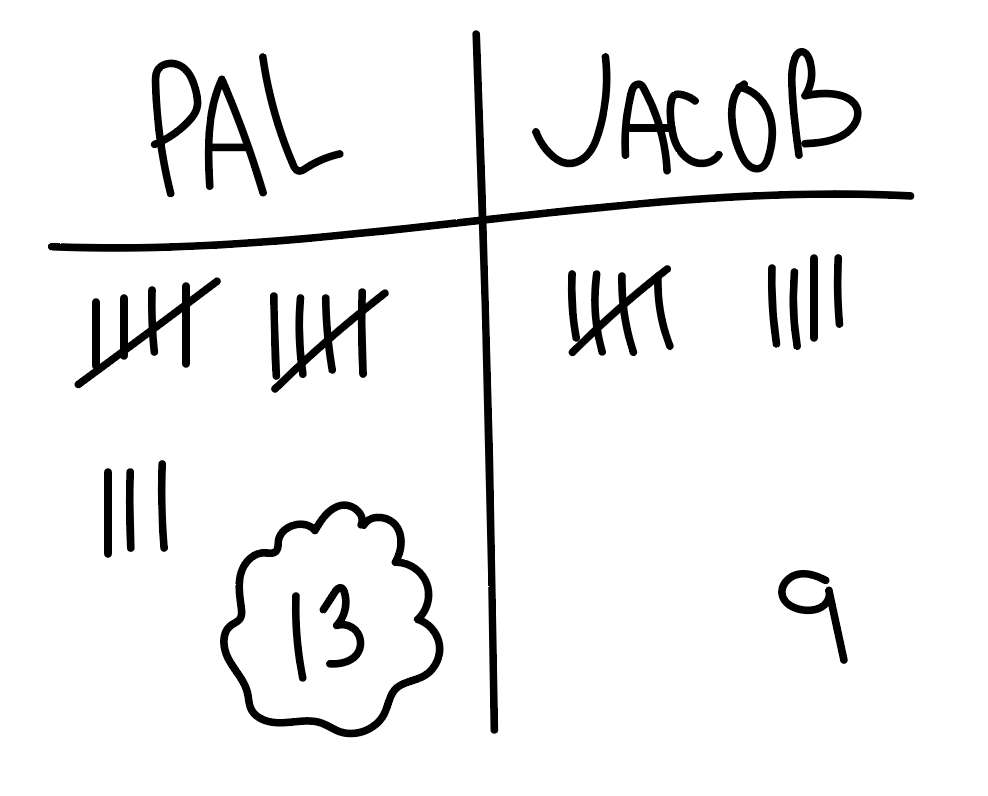 PAL
JACOB
13
9